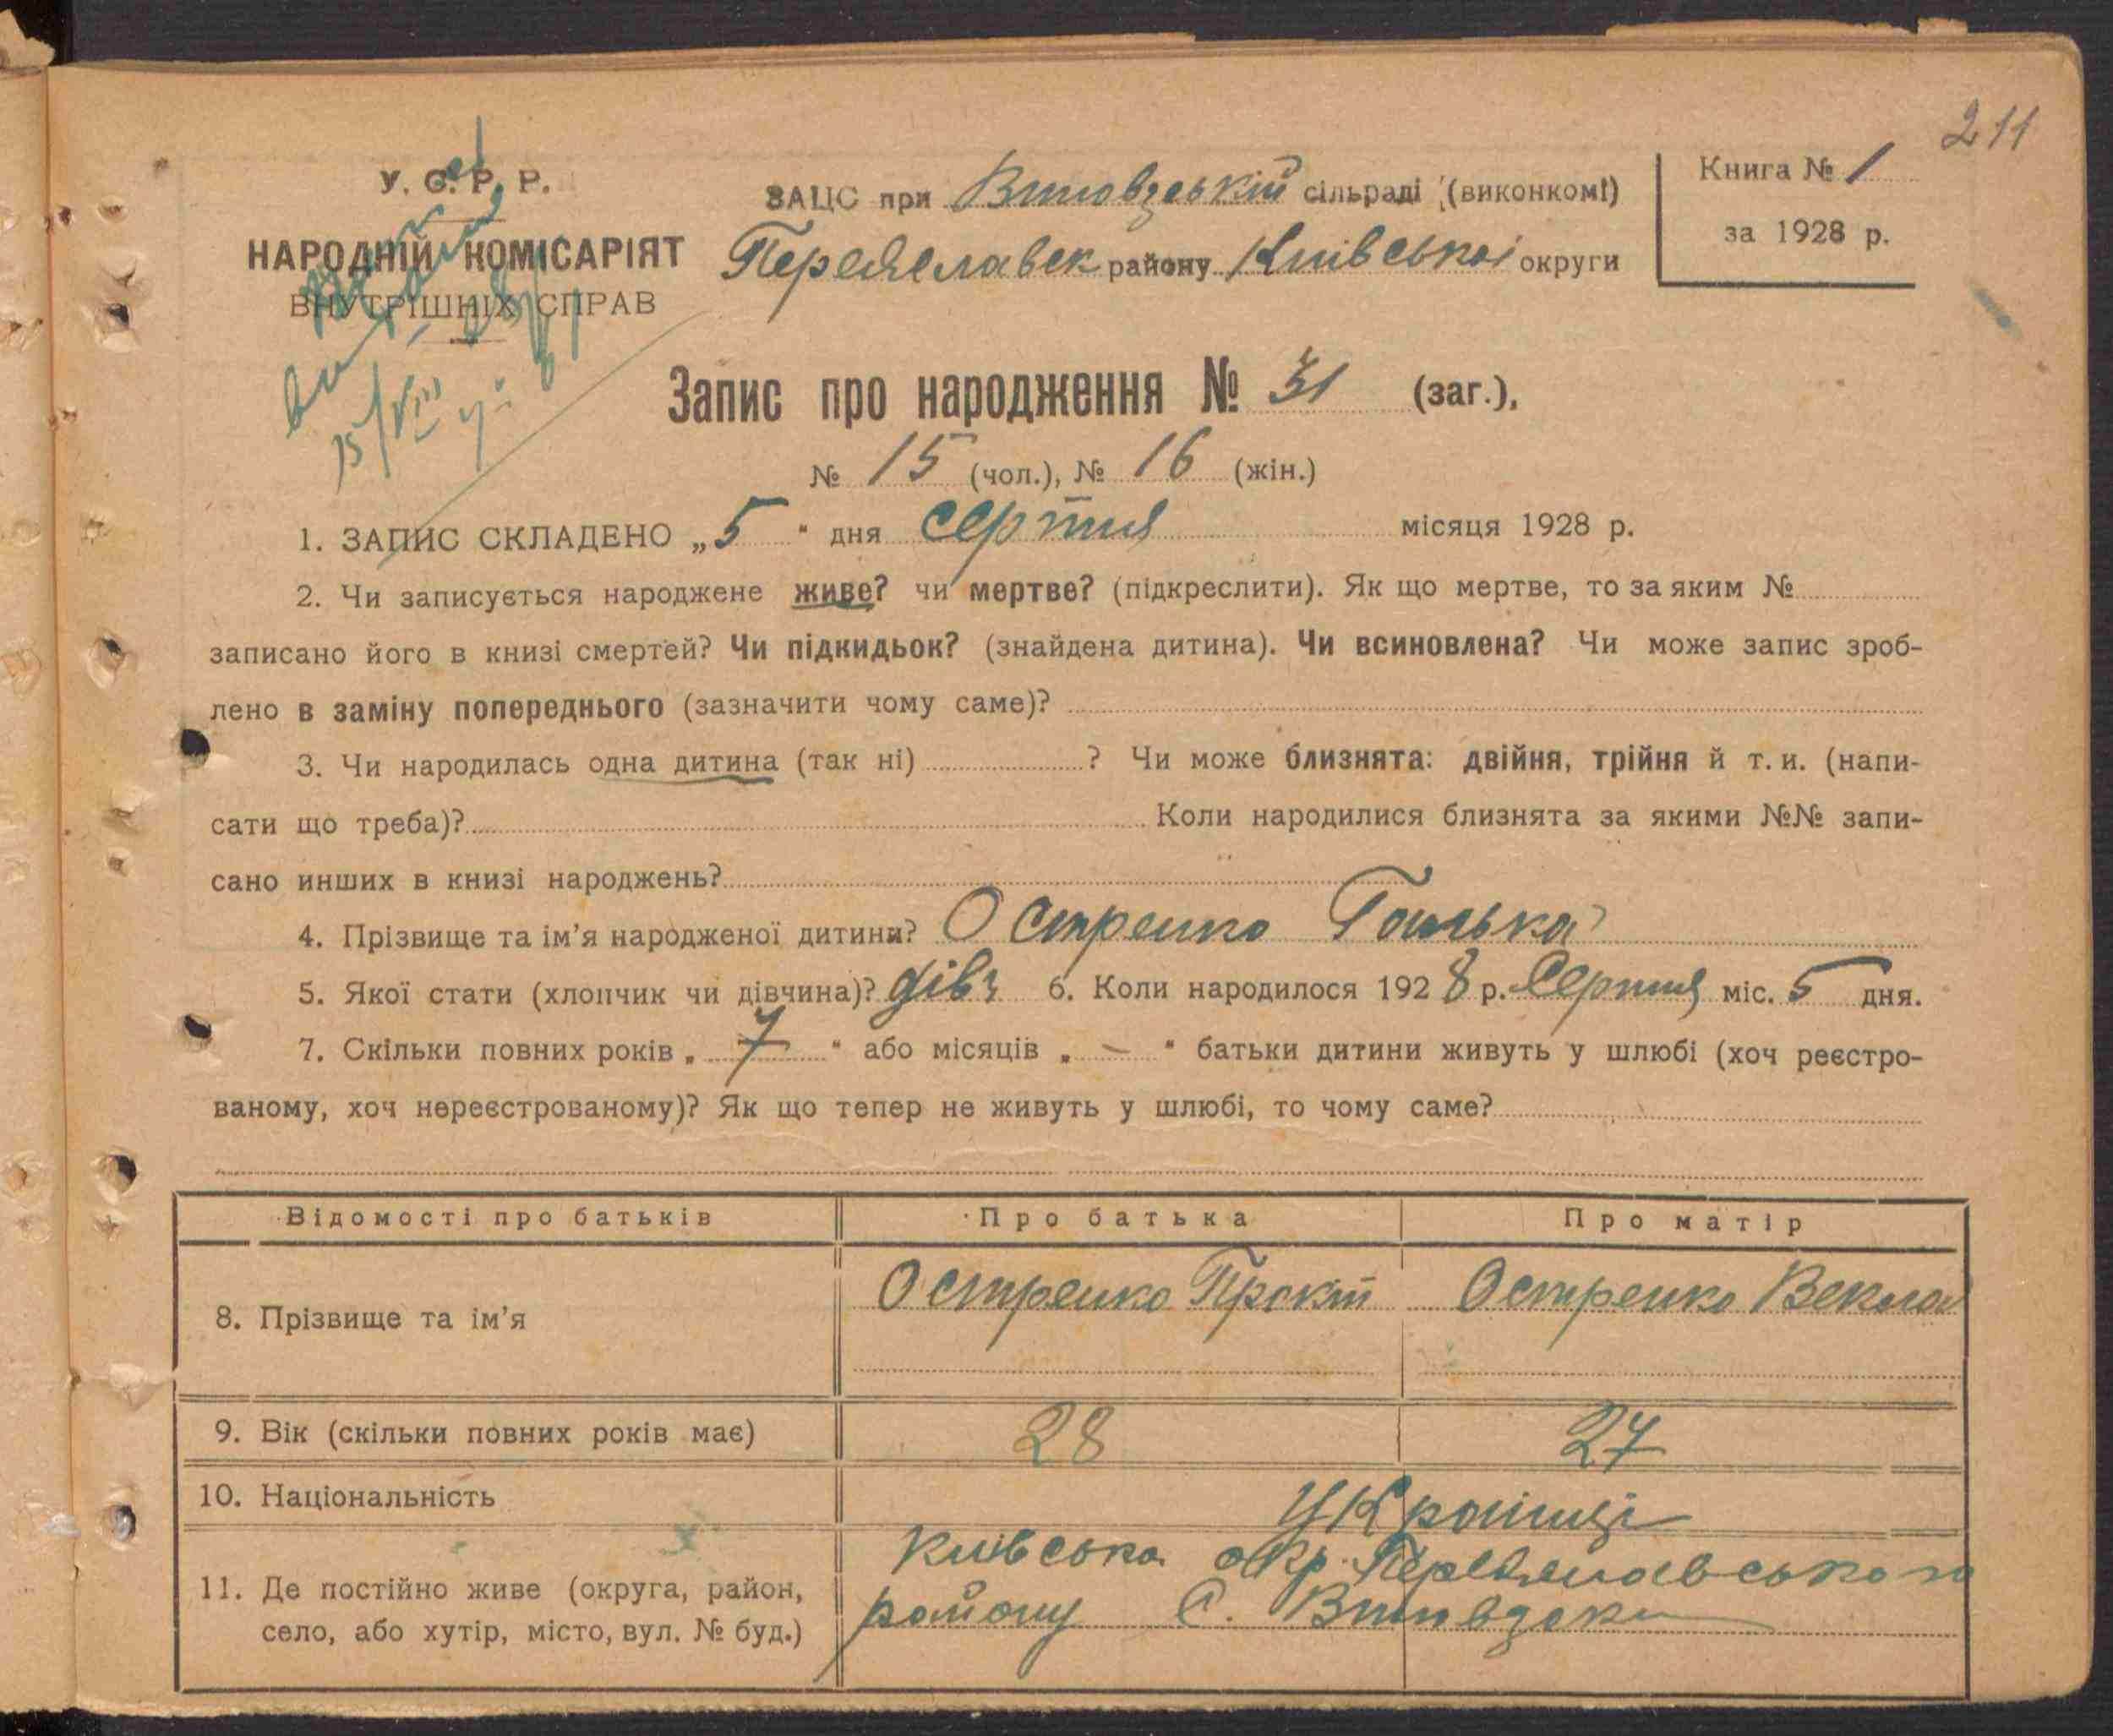 211
У. С. Р. Р.
НАРОДНІЙ КОМІСАРІЯТ
ВНУТРІШНІХ СПРАВ
15/VIII
ЗАЦС при сільраді (виконкомі)
Переяславськ району Київської округи
Книга № 1
за 1928 р.
Запис про народження № 31 (заг.),
№ 15 (чол.), № 16 (жін.)
1. ЗАПИС СКЛАДЕНО „5" дня серпня місяця 1928 р.
2. Чи записується народжене живе? чи мертве? (підкреслити). Як що мертве, то за яким №
записано його в книзі смертей? Чи підкидьок? (знайдена дитина). Чи всиновлена? Чи може запис зроб-
лено в заміну попереднього (зазначити чому саме)?
3. Чи народилась одна дитина (так ні) ? Чи може близнята: двійня, трійня й т. и. (напи-
сати що треба)? Коли народилися близнята за якими №№ запи-
сано инших в книзі народжень?
4. Прізвище та ім'я народженої дитини? Остренко Галька
5. Якої стати (хлопчик чи дівчина)? дівч 6. Коли народилося 1928 р. Серпня міс. 5 дня.
7. Скільки повних років „ 7 " або місяців „ – " батьки дитини живуть у шлюбі (хоч реєстро-
ваному, хоч нереєстрованому)? Як що тепер не живуть у шлюбі, то чому саме?
Відомості про батьків Про батька Про матір
8. Прізвище та ім'я Остренко Прокіп Остренко Векла
9. Вік (скільки повних років має) 28 27
10. Національність Українці
11. Де постійно живе (округа, район, село, або хутір, місто, вул. № буд.) Київська окр. Переяславського
району с.